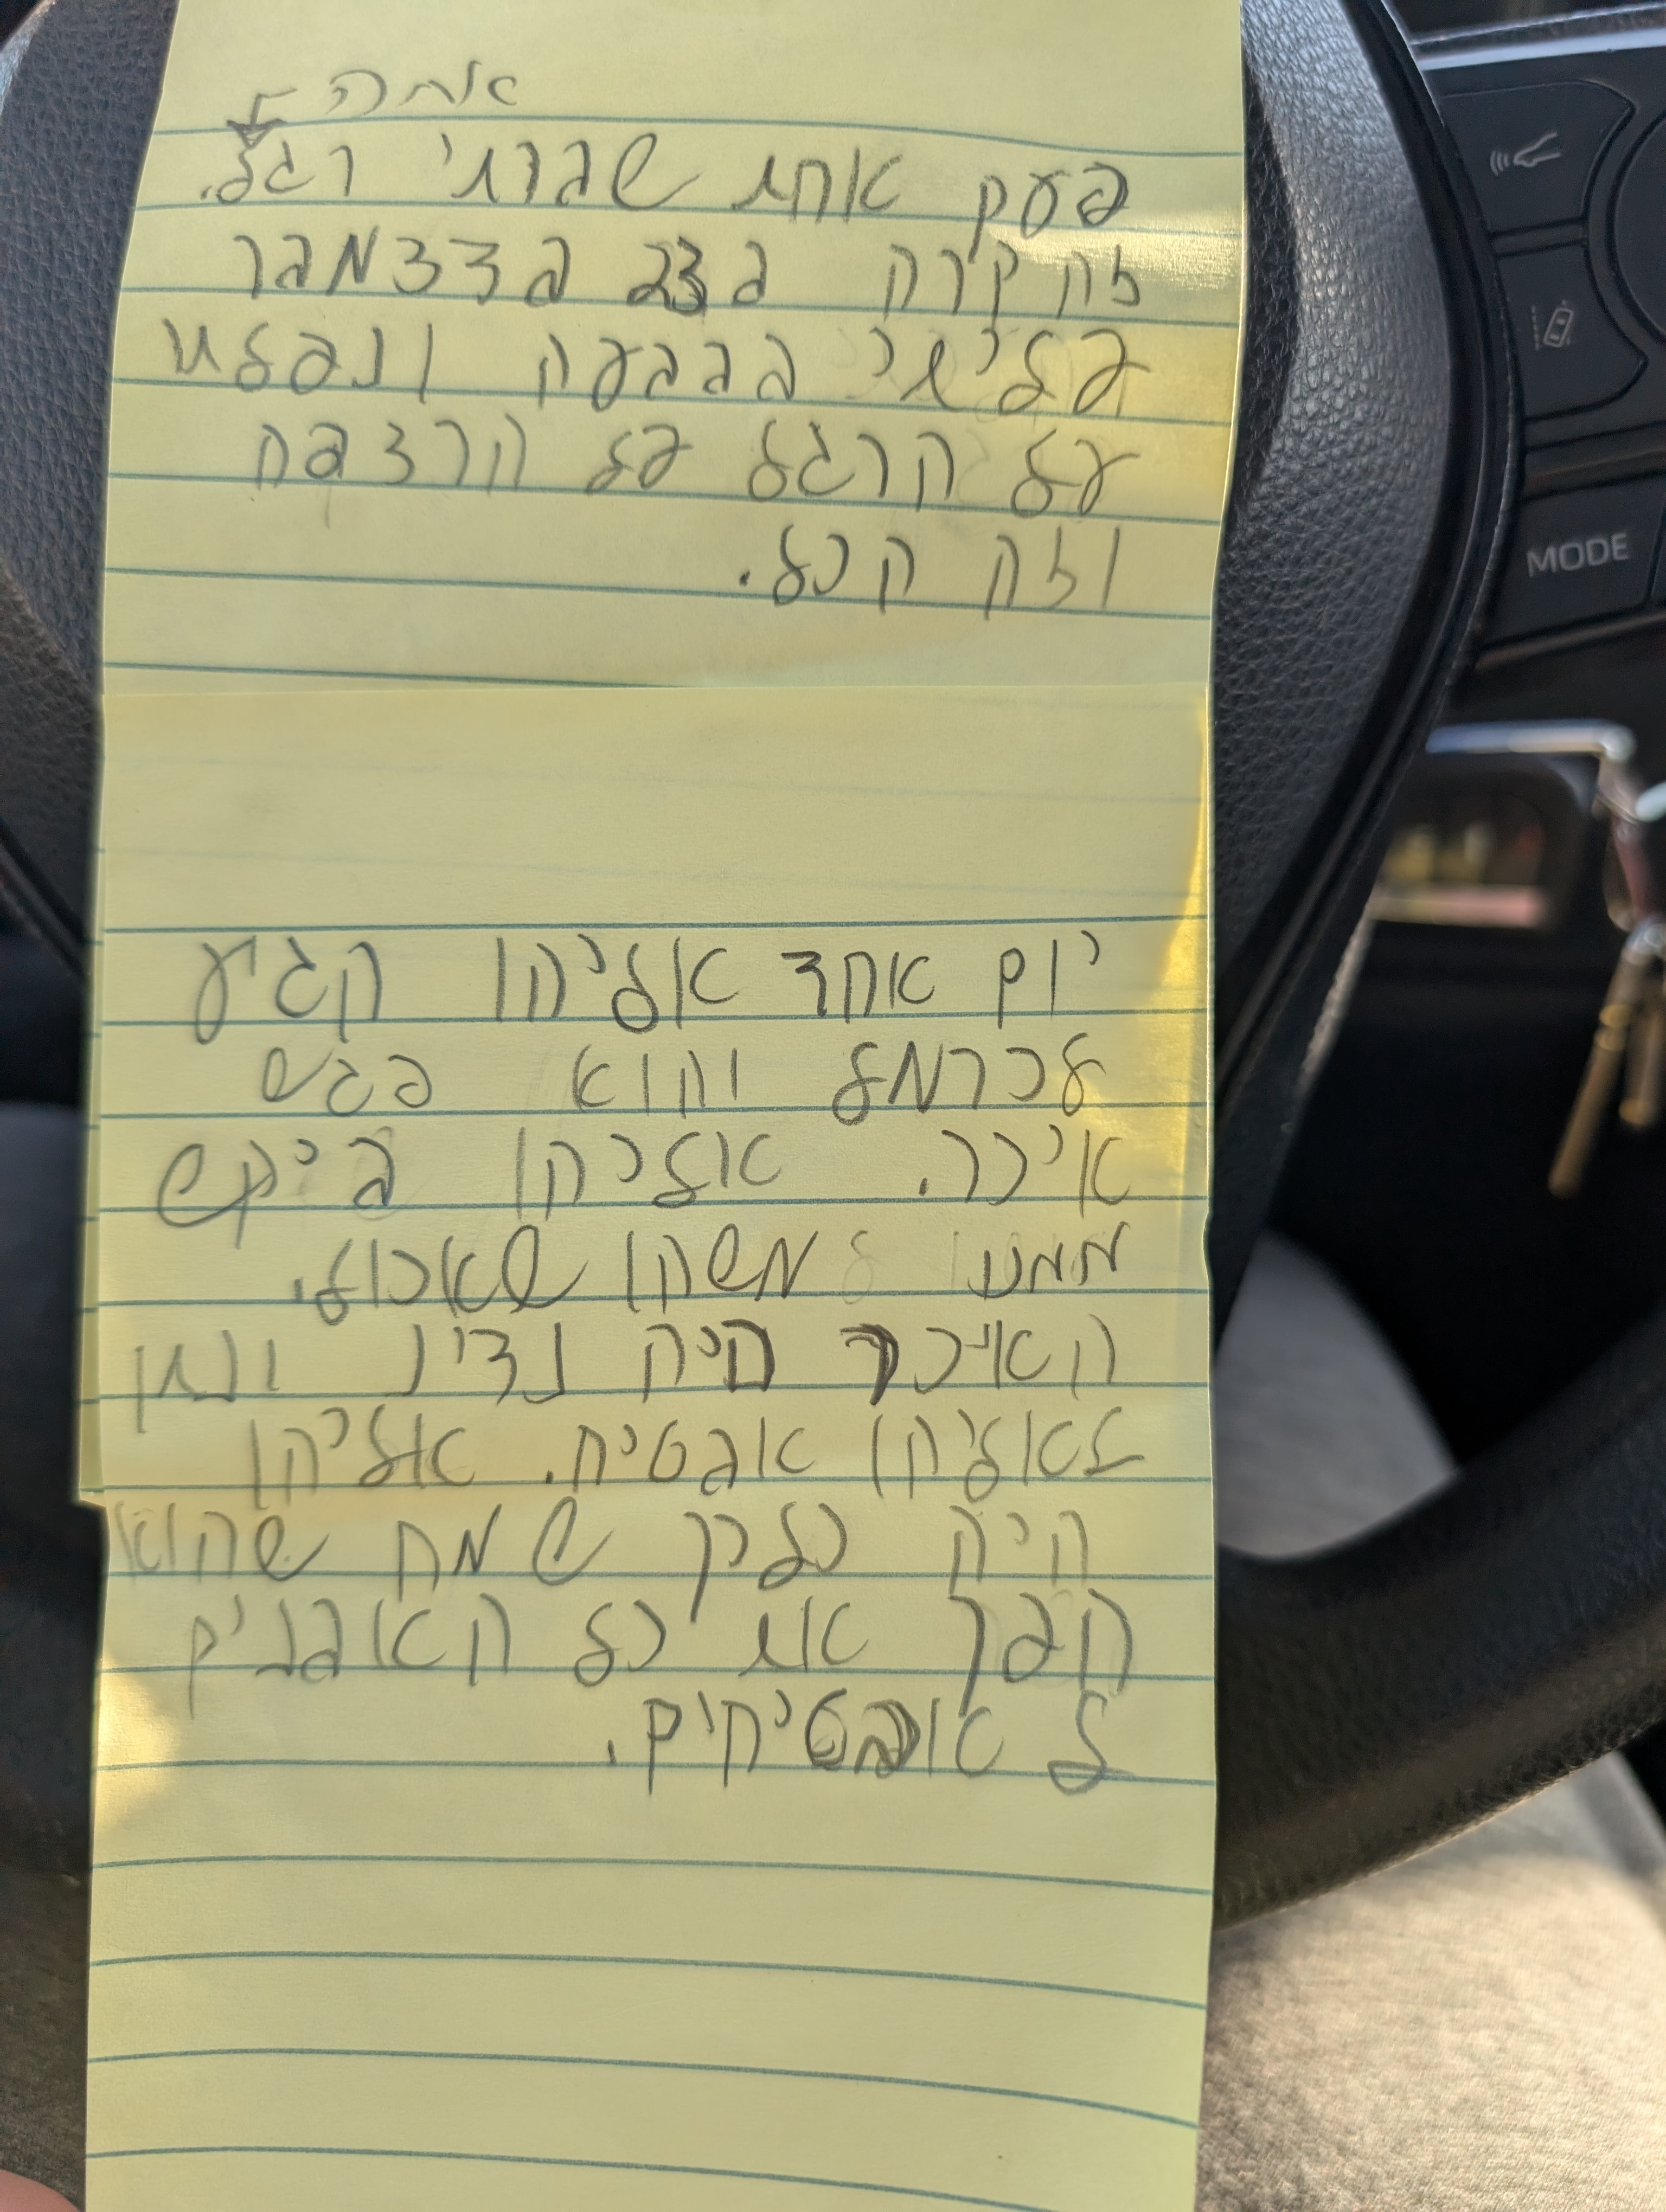 אחת
פעם אחת שברתי רגל.
זה קרה ב 23 בדצמבר
שלישי בגבעה ונפלתי
על הרגל על הרצפה
וזה הכל.
יום אחד אליהו הגיע
לכרמל והוא פגש
איכר. אליהו ביקש
ממנו משהו שאכול.
האיכר היה נדיב ונתן
לאליהו אבטיח. אליהו
היה כלכך שמח שהוא
הפך את כל האבנים
ל אובטיחים.
MODE